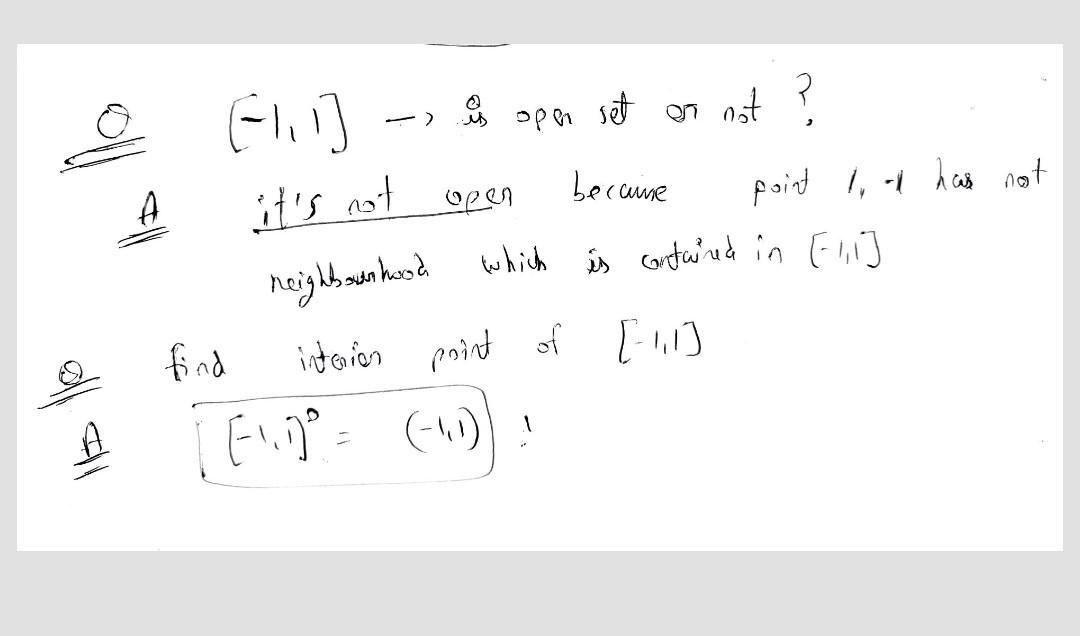 Q [-1, 1] → is open set or not ?
A it's not open because point 1, -1 has not
neighbourhood which is contained in [-1,1]
Q find interior point of [-1,1]
A [-1,1]° = (-1,1) !